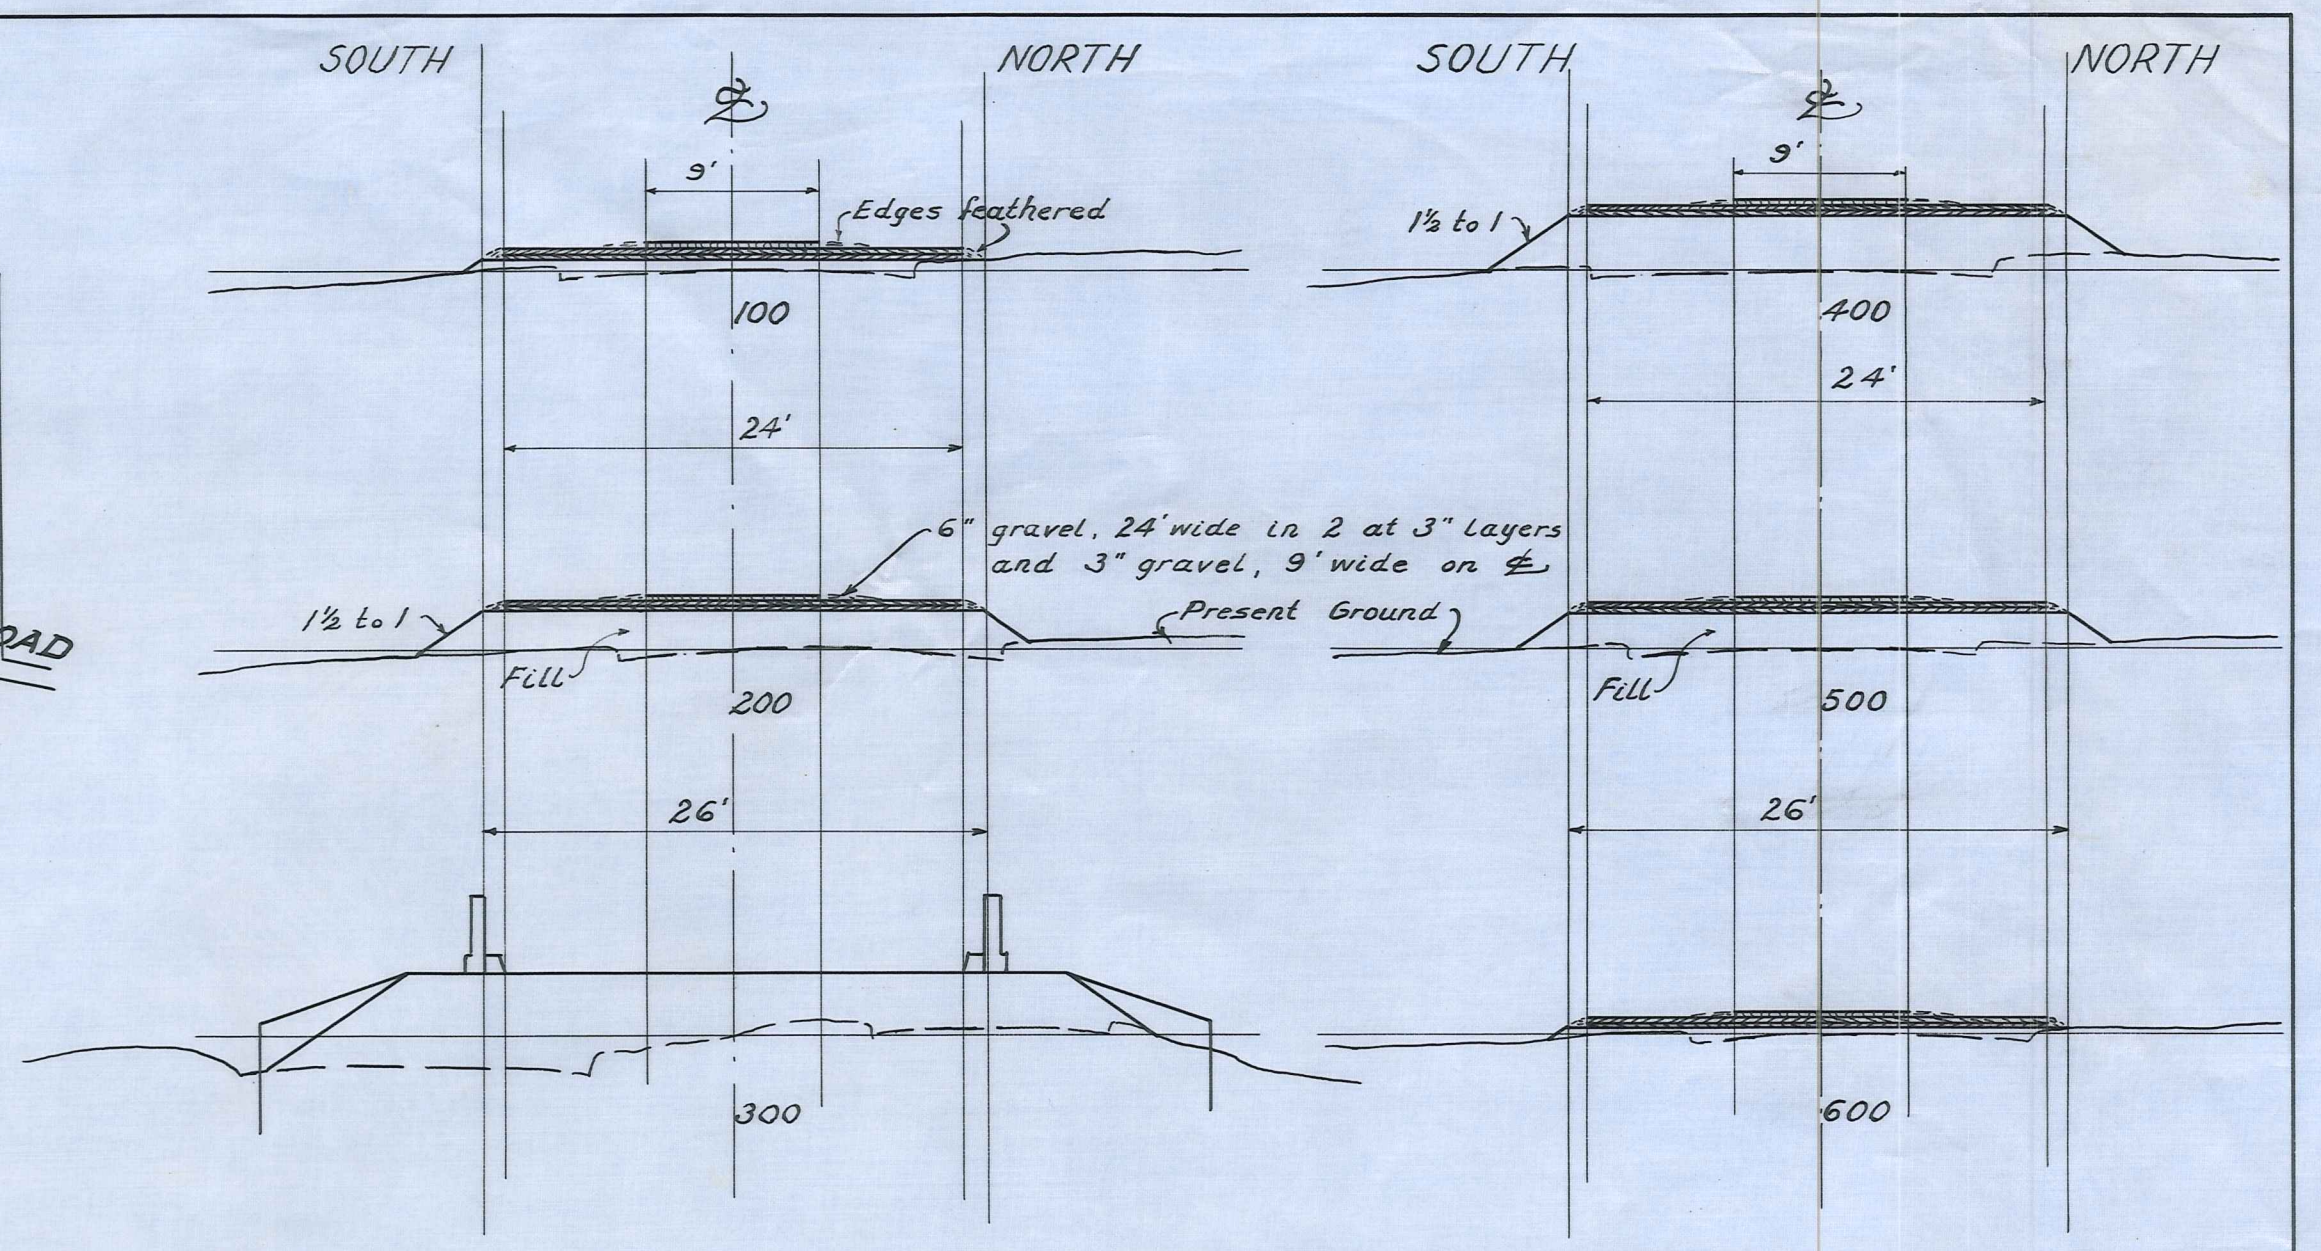 SOUTH
NORTH
℄
9'
Edges feathered
100
24'
6" gravel, 24' wide in 2 at 3" layers
and 3" gravel, 9' wide on ℄
1½ to 1
Present Ground
Fill
200
26'
300
OAD
SOUTH
NORTH
℄
9'
1½ to 1
400
24'
Fill
500
26'
600